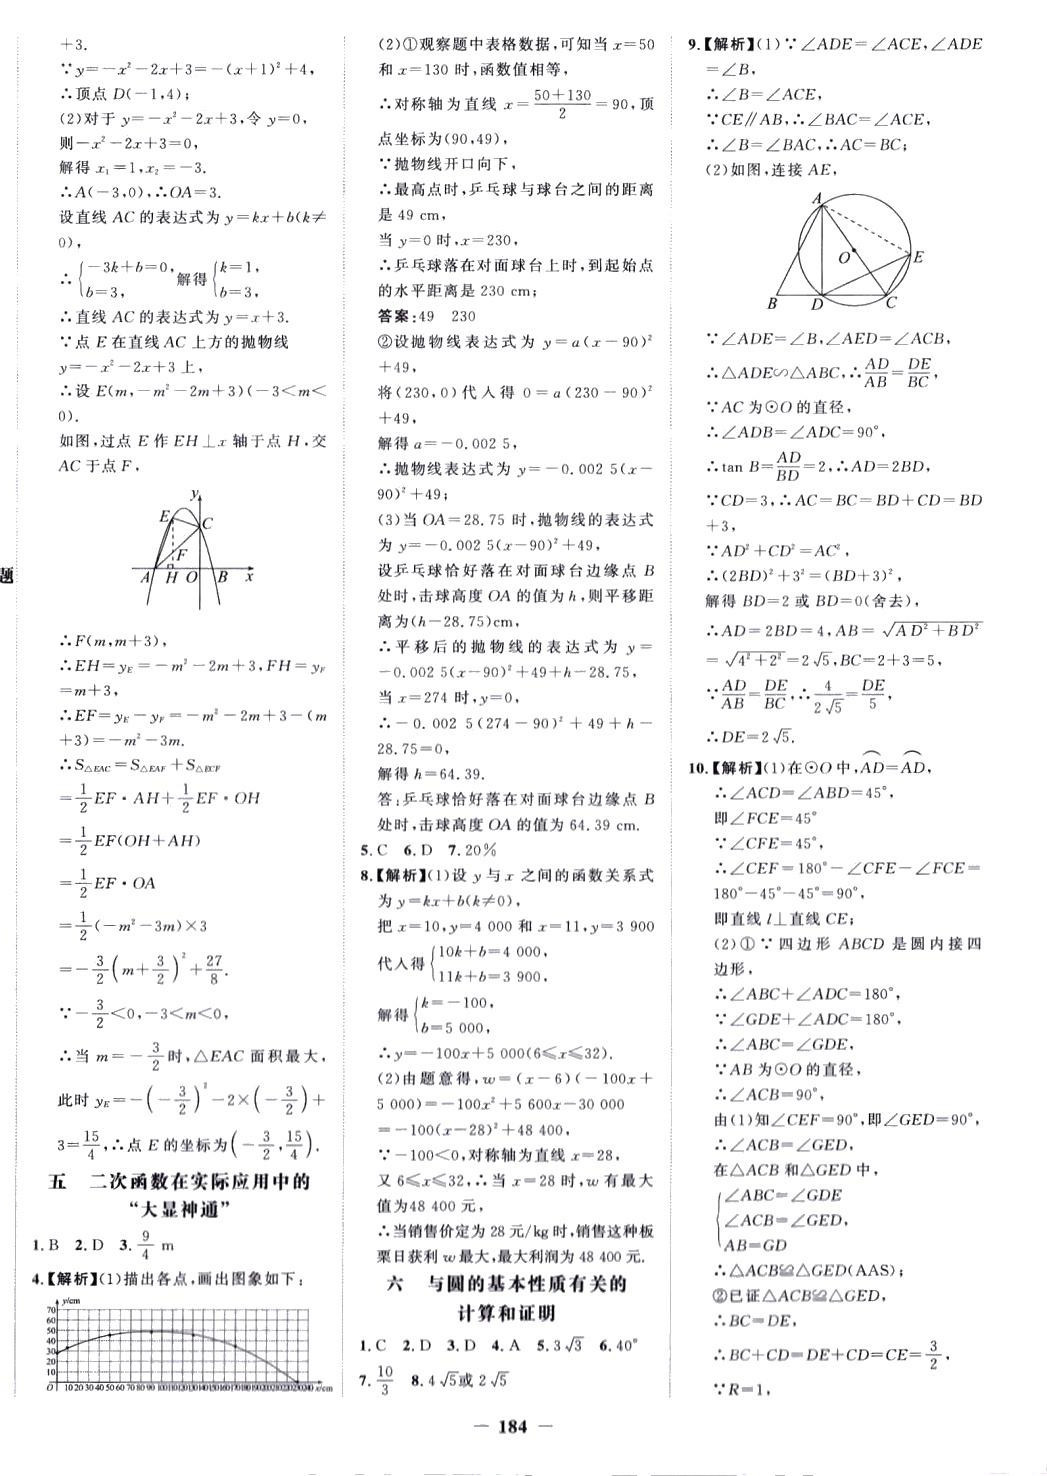 +3.
∵y=-x²-2x+3=-(x+1)²+4,
∴顶点 D(-1,4);
(2)对于 y=-x²-2x+3,令 y=0,
则-x²-2x+3=0,
解得 x₁=1,x₂=-3.
∴A(-3,0),∴OA=3.
设直线 AC 的表达式为 y=kx+b(k≠
0),
∴{-3k+b=0, b=3, 解得{k=1, b=3,
∴直线 AC 的表达式为 y=x+3.
∵点 E 在直线 AC 上方的抛物线
y=-x²-2x+3 上,
∴设 E(m,-m²-2m+3)(-3<m<
0).
如图,过点 E 作 EH⊥x 轴于点 H,交
AC 于点 F,
y
E
C
F
A H O B x
题
∴F(m,m+3),
∴EH=y_E=-m²-2m+3,FH=y_F
=m+3,
∴EF=y_E-y_F=-m²-2m+3-(m
+3)=-m²-3m.
∴S△EAC=S△EAF+S△ECF
=1/2EF·AH+1/2EF·OH
=1/2EF(OH+AH)
=1/2EF·OA
=1/2(-m²-3m)×3
=-3/2(m+3/2)²+27/8.
∵-3/2<0,-3<m<0,
∴当 m=-3/2时,△EAC 面积最大,
此时 y_E=-(-3/2)²-2×(-3/2)+
3=15/4,∴点 E 的坐标为(-3/2,15/4).
五 二次函数在实际应用中的
“大显神通”
1.B 2.D 3.9/4 m
4.【解析】(1)描出各点,画出图象如下:
y/cm
70
60
50
40
30
20
10
O 10 20 30 40 50 60 70 80 90 100110120130140150160170180190200210220230240 x/cm
(2)①观察题中表格数据,可知当 x=50
和 x=130 时,函数值相等,
∴对称轴为直线 x=(50+130)/2=90,顶
点坐标为(90,49),
∵抛物线开口向下,
∴最高点时,乒乓球与球台之间的距离
是 49 cm,
当 y=0 时,x=230,
∴乒乓球落在对面球台上时,到起始点
的水平距离是 230 cm;
答案:49 230
②设抛物线表达式为 y=a(x-90)²
+49,
将(230,0)代入得 0=a(230-90)²
+49,
解得 a=-0.002 5,
∴抛物线表达式为 y=-0.002 5(x-
90)²+49;
(3)当 OA=28.75 时,抛物线的表达式
为 y=-0.002 5(x-90)²+49,
设乒乓球恰好落在对面球台边缘点 B
处时,击球高度 OA 的值为 h,则平移距
离为(h-28.75)cm,
∴平移后的抛物线的表达式为 y=
-0.002 5(x-90)²+49+h-28.75,
当 x=274 时,y=0,
∴-0.002 5(274-90)²+49+h-
28.75=0,
解得 h=64.39.
答:乒乓球恰好落在对面球台边缘点 B
处时,击球高度 OA 的值为 64.39 cm.
5.C 6.D 7.20%
8.【解析】(1)设 y 与 x 之间的函数关系式
为 y=kx+b(k≠0),
把 x=10,y=4 000 和 x=11,y=3 900
代入得{10k+b=4 000, 11k+b=3 900,
解得{k=-100, b=5 000,
∴y=-100x+5 000(6≤x≤32).
(2)由题意得,w=(x-6)(-100x+
5 000)=-100x²+5 600x-30 000
=-100(x-28)²+48 400,
∵-100<0,对称轴为直线 x=28,
又 6≤x≤32,∴当 x=28 时,w 有最大
值为48 400 元,
∴当销售价定为 28 元/kg 时,销售这种板
栗日获利 w 最大,最大利润为 48 400 元.
六 与圆的基本性质有关的
计算和证明
1.C 2.D 3.D 4.A 5.3√3 6.40°
7.10/3 8.4√5或 2√5
9.【解析】(1)∵∠ADE=∠ACE,∠ADE
=∠B,
∴∠B=∠ACE,
∵CE∥AB,∴∠BAC=∠ACE,
∴∠B=∠BAC,∴AC=BC;
(2)如图,连接 AE,
A
O
E
B D C
∵∠ADE=∠B,∠AED=∠ACB,
∴△ADE∽△ABC,∴AD/AB=DE/BC,
∵AC 为⊙O 的直径,
∴∠ADB=∠ADC=90°,
∴tan B=AD/BD=2,∴AD=2BD,
∵CD=3,∴AC=BC=BD+CD=BD
+3,
∵AD²+CD²=AC²,
∴(2BD)²+3²=(BD+3)²,
解得 BD=2 或 BD=0(舍去),
∴AD=2BD=4,AB=√(AD²+BD²)
=√(4²+2²)=2√5,BC=2+3=5,
∵AD/AB=DE/BC,∴4/(2√5)=DE/5,
∴DE=2√5.
10.【解析】(1)在⊙O 中,A͡D=A͡D,
∴∠ACD=∠ABD=45°,
即∠FCE=45°
∵∠CFE=45°,
∴∠CEF=180°-∠CFE-∠FCE=
180°-45°-45°=90°,
即直线 l⊥直线 CE;
(2)①∵四边形 ABCD 是圆内接四
边形,
∴∠ABC+∠ADC=180°,
∵∠GDE+∠ADC=180°,
∴∠ABC=∠GDE,
∵AB 为⊙O 的直径,
∴∠ACB=90°,
由(1)知∠CEF=90°,即∠GED=90°,
∴∠ACB=∠GED,
在△ACB 和△GED 中,
{∠ABC=∠GDE
∠ACB=∠GED,
AB=GD
∴△ACB≌△GED(AAS);
②已证△ACB≌△GED,
∴BC=DE,
∴BC+CD=DE+CD=CE=3/2,
∵R=1,
— 184 —